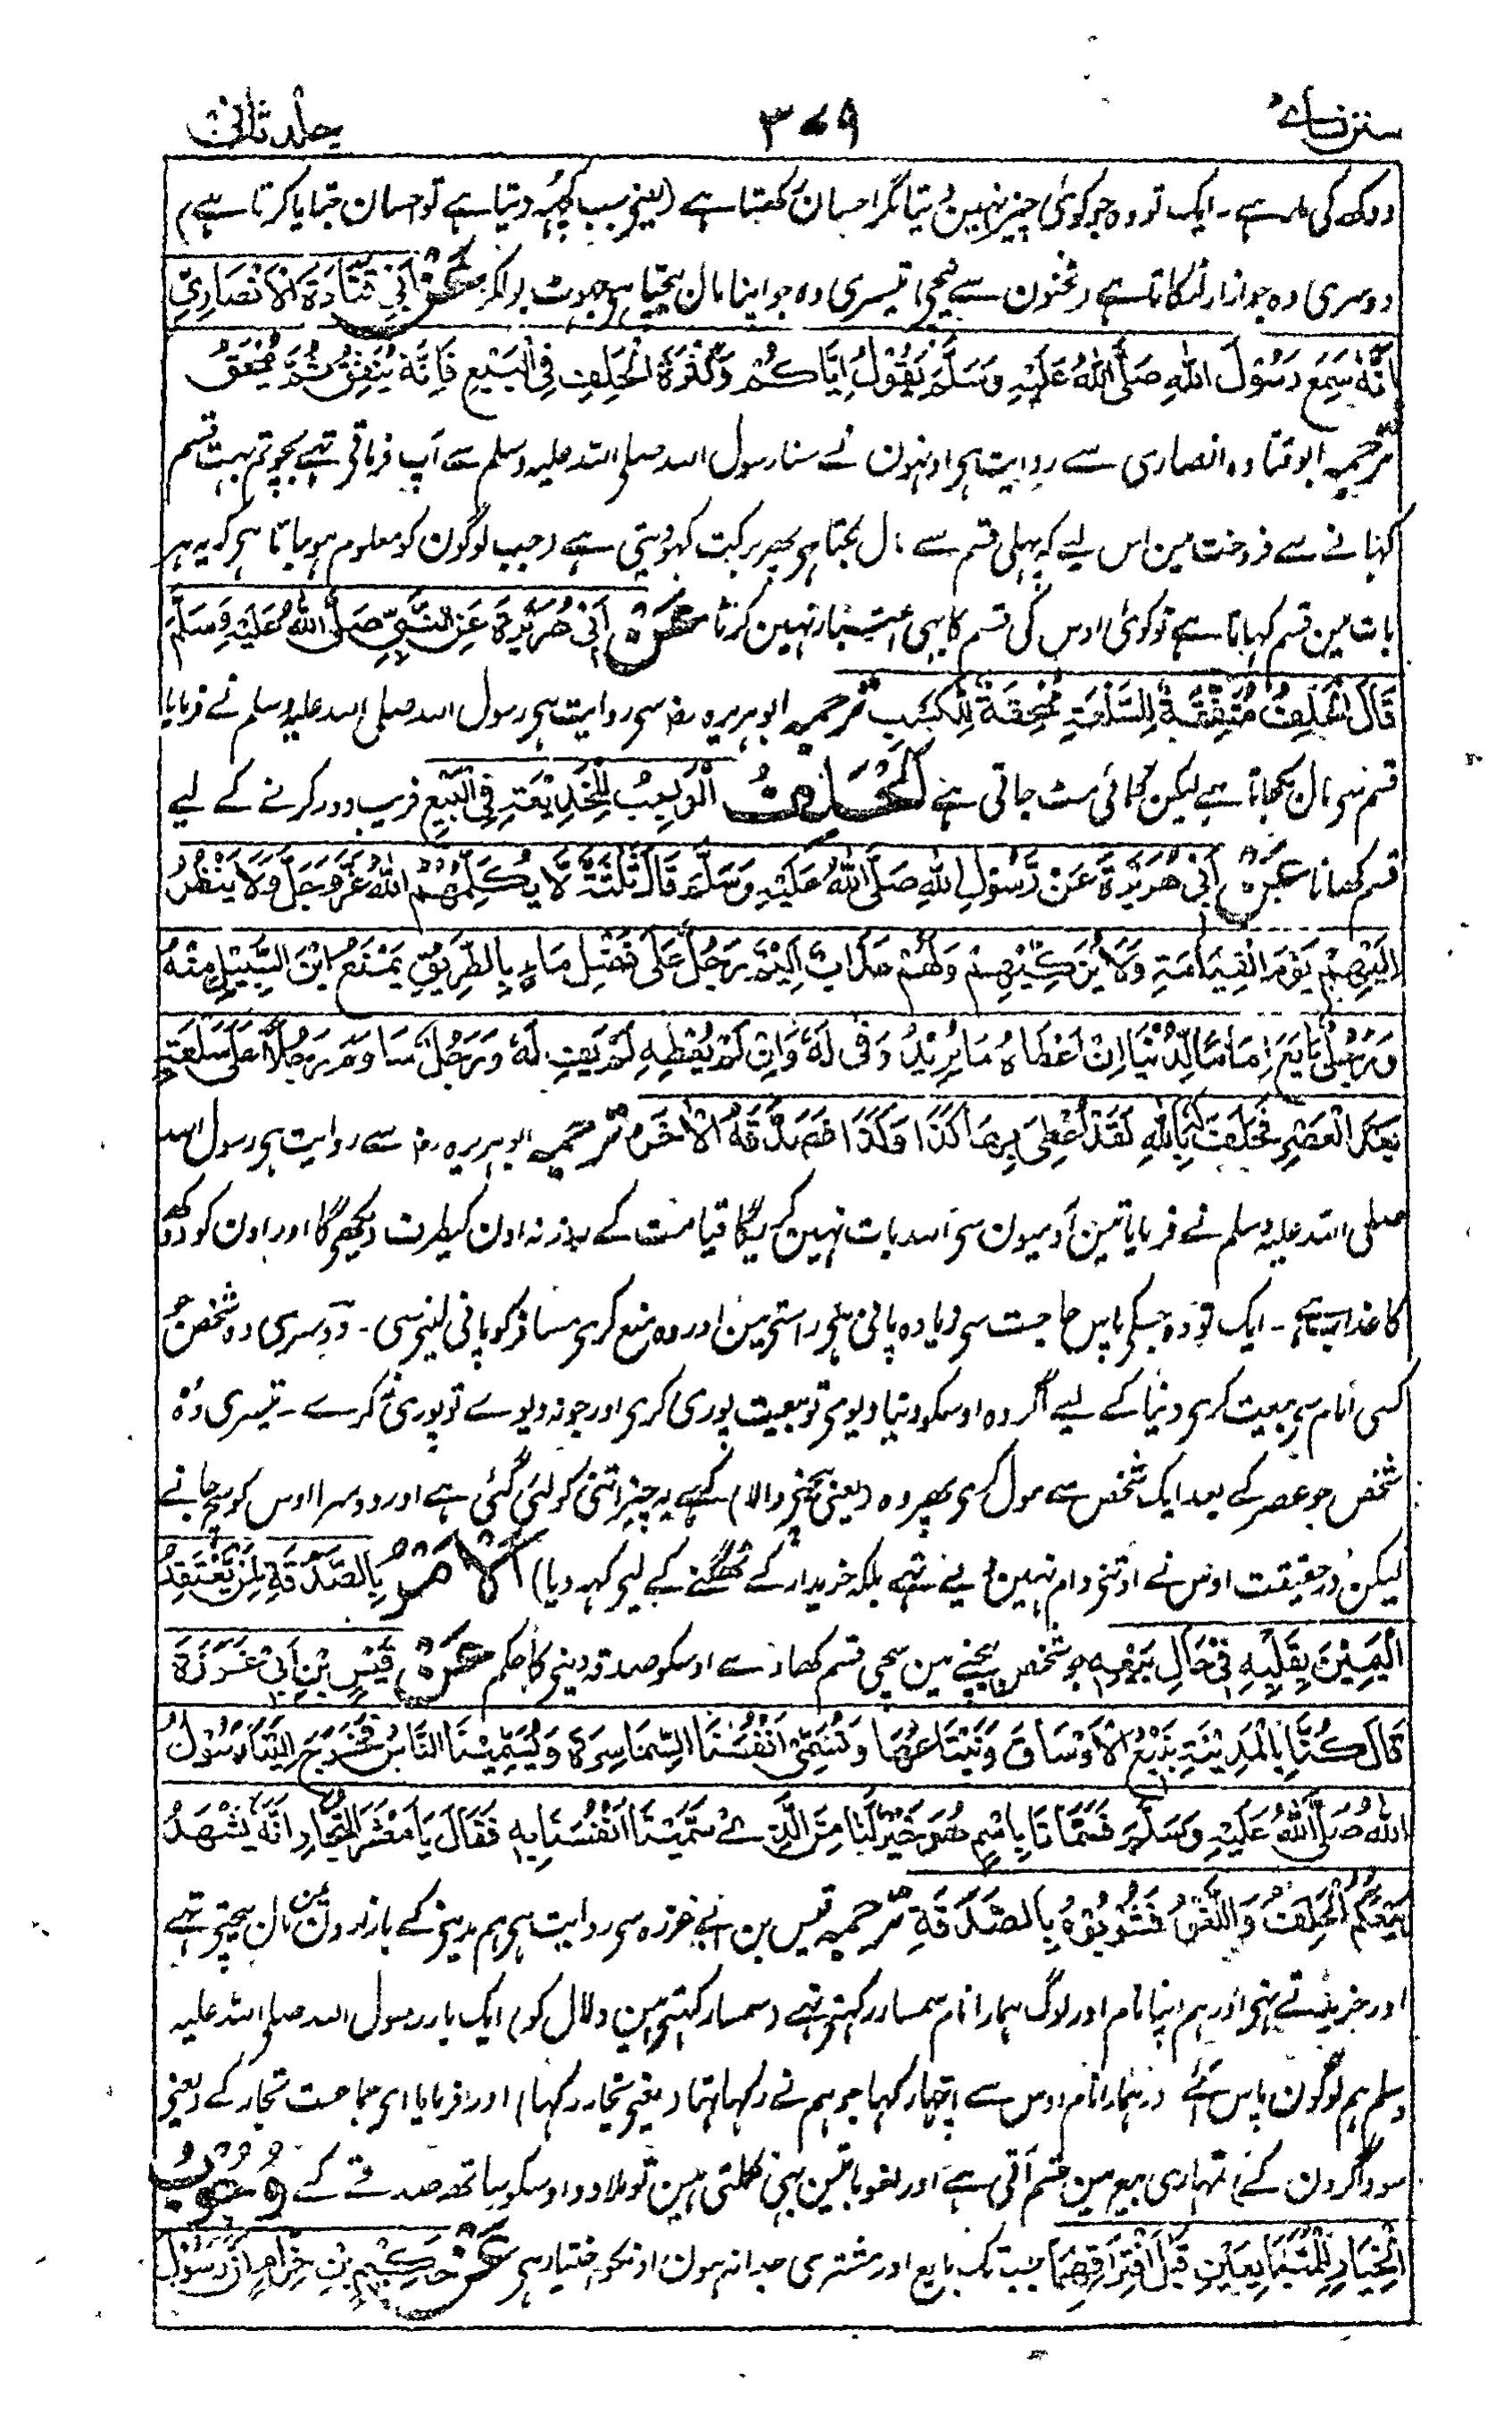 سنن نسائی ۳۷۹ جلد ثانی
دوکھ کی مار ہے ۔ ایک تو وہ جو کوئی چیز نہیں دیتا مگر احسان رکھتا ہے (یعنی جب کچھہ دیتا ہے تو احسان جتایا کرتا ہے)
دوسری وہ جو ازار لٹکاتا ہے (ٹخنون سے نیچی) تیسری وہ جو اپنا مال بیچتا ہی جھوٹ بولکر عَنْ أَبِي قَتَادَةَ الْأَنْصَارِيِّ
أَنَّهُ سَمِعَ رَسُوْلَ اللهِ صَلَّى اللهُ عَلَيْهِ وَسَلَّمَ يَقُوْلُ إِيَّاكُمْ وَكَثْرَةَ الْحَلِفِ فِي الْبَيْعِ فَإِنَّهُ يُنَفِّقُ ثُمَّ يَمْحَقُ
ترجمہ ابو قتادہ انصاری سے روایت ہی اونہون نے سنا رسول اللہ صلی اللہ علیہ وسلم سے آپ فرماتی تہے بچو تم بہت قسم
کہانے سے فروخت مین اس لیے کہ پہلی قسم سے مال بکتا ہی پھر برکت کہو دیتی ہے (جب لوگون کو معلوم ہو جاتا ہی کہ یہ ہر
بات مین قسم کہاتا ہے تو کوئی اوس کی قسم کا بہی اعتبار نہین کرتا عَنْ أَبِي هُرَيْرَةَ عَنِ النَّبِيِّ صَلَّى اللهُ عَلَيْهِ وَسَلَّمَ
قَالَ الْحَلِفُ مُنَفِّقَةٌ لِلسِّلْعَةِ مُمْحِقَةٌ لِلْكَسْبِ ترجمہ ابو ہریرہ رضہ سی روایت ہی رسول اللہ صلی اللہ علیہ وسلم نے فرمایا
قسم سی مال بکجاتا ہے لیکن کمائی مٹ جاتی ہے اَلْحَلِفُ الْوَاجِبُ لِلْخَدِيْعَةِ فِي الْبَيْعِ فریب دور کرنے کے لیے
قسم کھانا عَنْ أَبِي هُرَيْرَةَ عَنْ رَسُوْلِ اللهِ صَلَّى اللهُ عَلَيْهِ وَسَلَّمَ قَالَ ثَلٰثَةٌ لَا يُكَلِّمُهُمُ اللهُ عَزَّ وَجَلَّ وَلَا يَنْظُرُ
إِلَيْهِمْ يَوْمَ الْقِيَامَةِ وَلَا يُزَكِّيْهِمْ وَلَهُمْ عَذَابٌ أَلِيْمٌ رَجُلٌ عَلَى فَضْلِ مَاءٍ بِالطَّرِيْقِ يَمْنَعُ ابْنَ السَّبِيْلِ مِنْهُ
وَرَجُلٌ بَايَعَ إِمَامًا لِدُنْيَا إِنْ أَعْطَاهُ مَا يُرِيْدُ وَفَى لَهُ وَإِنْ لَمْ يُعْطِهِ لَمْ يَفِ لَهُ وَرَجُلٌ سَاوَمَ رَجُلًا عَلَى سِلْعَةٍ
بَعْدَ الْعَصْرِ فَحَلَفَ لَهُ بِاللهِ لَقَدْ أُعْطِيَ بِهَا كَذَا وَكَذَا فَصَدَّقَهُ الْآخَرُ ترجمہ ابو ہریرہ رضہ سے روایت ہی رسول اللہ
صلی اللہ علیہ وسلم نے فرمایا تین آدمیون سی اللہ بات نہین کریگا قیامت کے روز نہ اون کیطرف دیکھی گا اور اون کو دکھ
کا عذاب ہے ۔ ایک تو وہ جسکی پاس حاجت سی زیادہ پانی ہی راستی مین اور وہ منع کری مسافر کو پانی لینی سی ۔ دوسری وہ شخص جو
کسی امام سی بیعت کری دنیا کے لیے اگر وہ اوسکو دنیا دیوی تو بیعت پوری کری اور جو نہ دیوے تو پوری نہ کرے ۔ تیسری وہ
شخص جو عصر کے بعد ایک شخص سے مول کری پھر وہ (یعنی بیچنی والا) کہے یہ چیز اتنی کو لی گئی ہے اور دوسرا اوس کو سچ جانے
لیکن درحقیقت اوس نے اوتنی دام نہین دیے تہے بلکہ خریدار کے ٹھگنے کے لیی کہہ دیا) اَلْأَمْرُ بِالصَّدَقَةِ لِمَنْ يَعْتَقِدُ
الْيَمِيْنَ بِقَلْبِهِ فِيْ حَالِ بَيْعِهِ جو شخص بیچنے مین سچی قسم کھاوے اوسکو صدقہ دینی کا حکم عَنْ قَيْسِ بْنِ أَبِيْ غَرَزَةَ
قَالَ كُنَّا بِالْمَدِيْنَةِ نَبِيْعُ الْأَوْسَاقَ وَنَبْتَاعُهَا وَنُسَمِّيْ أَنْفُسَنَا السَّمَاسِرَةَ وَيُسَمِّيْنَا النَّاسُ فَخَرَجَ إِلَيْنَا رَسُوْلُ
اللهِ صَلَّى اللهُ عَلَيْهِ وَسَلَّمَ فَسَمَّانَا بِاسْمٍ هُوَ خَيْرٌ لَنَا مِنَ الَّذِيْ سَمَّيْنَا أَنْفُسَنَا بِهِ فَقَالَ يَا مَعْشَرَ التُّجَّارِ إِنَّهُ يَشْهَدُ
بَيْعَكُمُ الْحَلِفُ وَاللَّغْوُ فَشُوْبُوْهُ بِالصَّدَقَةِ ترجمہ قیس بن ابی غرزہ سی روایت ہی ہم مدینی کے بازارون مین مال بیچتی تہے
اور خریدتے تہی اور ہم اپنا نام اور لوگ ہمارا نام سمسار رکہتی تہے (سمسار کہتی ہین دلال کو) ایک بار رسول اللہ صلی اللہ علیہ
وسلم ہم لوگون پاس آئے اور ہمارا نام اوس سے اچہا رکہا جو ہم نے رکہا تہا (یعنی تجار رکہا) اور فرمایا ای جماعت تجار کے (یعنی
سوداگرون کے) تمہاری بیع مین قسم آتی ہے اور لغو باتین بہی نکلتی ہین تو ملادو اوسکو ساتھ صدقے کے وُجُوْبُ
الْخِيَارِ لِلْمُتَبَايِعَيْنِ قَبْلَ افْتِرَاقِهِمَا جب تک بایع اور مشتری جدا نہ ہون اونکو اختیار ہی عَنْ حَكِيْمِ بْنِ حِزَامٍ أَنَّ رَسُوْلَ